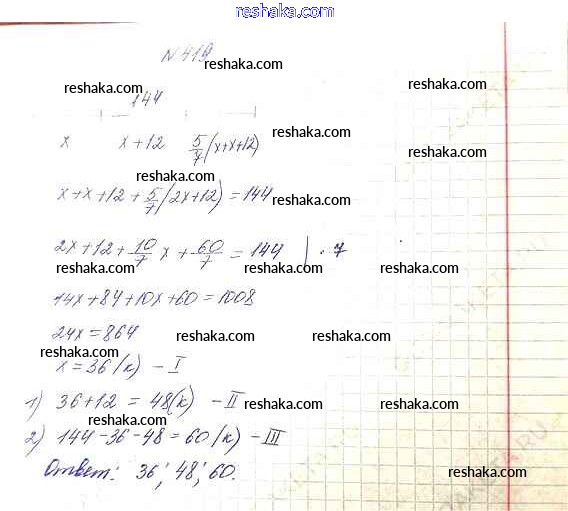 reshaka.com
N 419
reshaka.com
reshaka.com
144
reshaka.com
x x+12 5/7(x+x+12)
reshaka.com
reshaka.com
x+x+12+5/7(2x+12)=144
reshaka.com
2x+12+10/7x+60/7=144 | ·7
reshaka.com reshaka.com reshaka.com
14x+84+10x+60=1008
24x=864
reshaka.com reshaka.com
reshaka.com
x=36(к) - I
1) 36+12=48(к) - II
reshaka.com reshaka.com
reshaka.com
2) 144-36-48=60(к) - III
Ответ: 36; 48; 60.
reshaka.com
reshaka.com